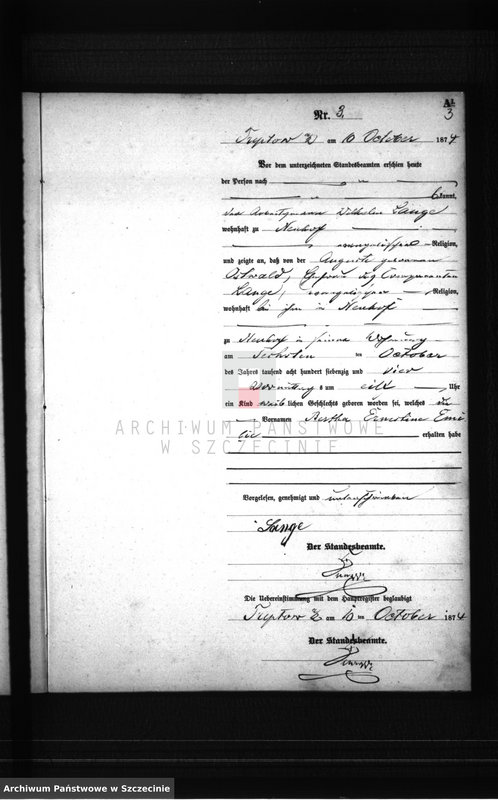 A1
Nr. 3.
3
Treptow a/R am 10 October 1874
Vor dem unterzeichneten Standesbeamten erschien heute
der Person nach
kannt,
der Arbeitsmann Wilhelm Lange
wohnhaft zu Neuhof
evangelischer Religion,
und zeigte an, daß von der Auguste geborenen
Ostwald, Ehefrau des Comparenten
Lange, evangelischer Religion,
wohnhaft bei ihm in Neuhof
zu Neuhof in seiner Wohnung
am Sechsten ten October
des Jahres tausend acht hundert siebenzig und vier
Vormittag s um Uhr
ein Kind weiblichen Geschlechts geboren worden sei, welches die
Vornamen Bertha Ernestine Emi
lie erhalten habe
ARCHIWUM PAŃSTWOWE
W SZCZECINIE
Vorgelesen, genehmigt und unterschrieben
Lange
Der Standesbeamte.
Die Uebereinstimmung mit dem Hauptregister beglaubigt
Treptow a/R am 10 ten October 1874
Der Standesbeamte.
Archiwum Państwowe w Szczecinie